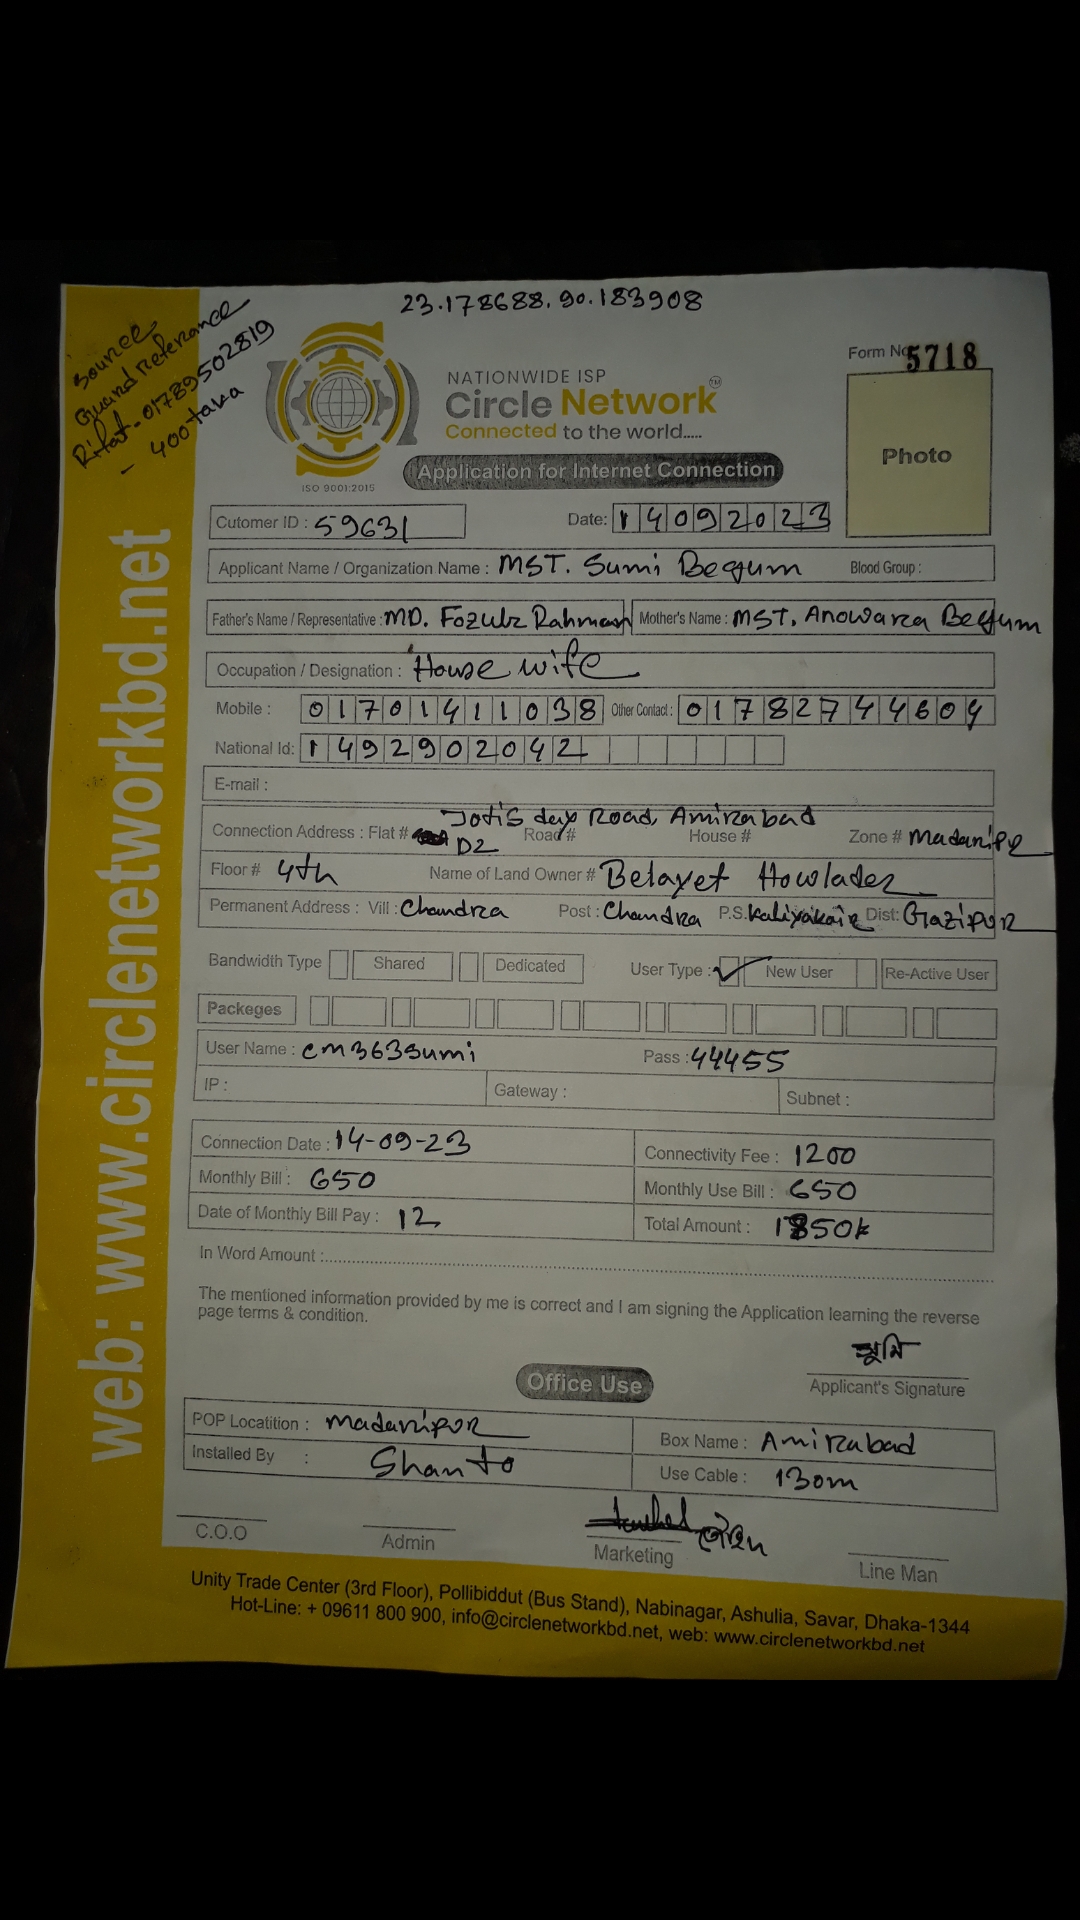 23.178688.90.183908
Source
Guard Referance
Rifat-01789502819
- 400 taka
Form No 5718
NATIONWIDE ISP
Circle Network™
Connected to the world.....
ISO 9001:2015
Application for Internet Connection
Photo
Cutomer ID : 59631
Date: 14092023
Applicant Name / Organization Name : MST. Sumi Begum Blood Group :
Father's Name / Representative : MD. Fozulr Rahman Mother's Name : MST. Anowara Begum
Occupation / Designation : House wife
Mobile : 01701411038 Other Contact : 01782744604
National Id: 1492902042
E-mail :
Jotis day Road, Amirabad
Connection Address : Flat # D2 Road # House # Zone # Madaripur
Floor # 4th Name of Land Owner # Belayet Howlader
Permanent Address : Vill : Chandra Post : Chandra P.S. Kaliyakair Dist: Gazipur
Bandwidth Type Shared Dedicated User Type : ✓ New User Re-Active User
Packeges
User Name : cm363sumi Pass : 44455
IP : Gateway : Subnet :
Connection Date : 14-09-23 Connectivity Fee : 1200
Monthly Bill : 650 Monthly Use Bill : 650
Date of Monthly Bill Pay : 12 Total Amount : 1850
In Word Amount :
The mentioned information provided by me is correct and I am signing the Application learning the reverse
page terms & condition.
সুমি
Applicant's Signature
Office Use
POP Locatition : Madaripur Box Name : Amirabad
Installed By : Shanto Use Cable : 130m
C.O.O Admin Marketing Line Man
Unity Trade Center (3rd Floor), Pollibiddut (Bus Stand), Nabinagar, Ashulia, Savar, Dhaka-1344
Hot-Line: + 09611 800 900, info@circlenetworkbd.net, web: www.circlenetworkbd.net
web: www.circlenetworkbd.net